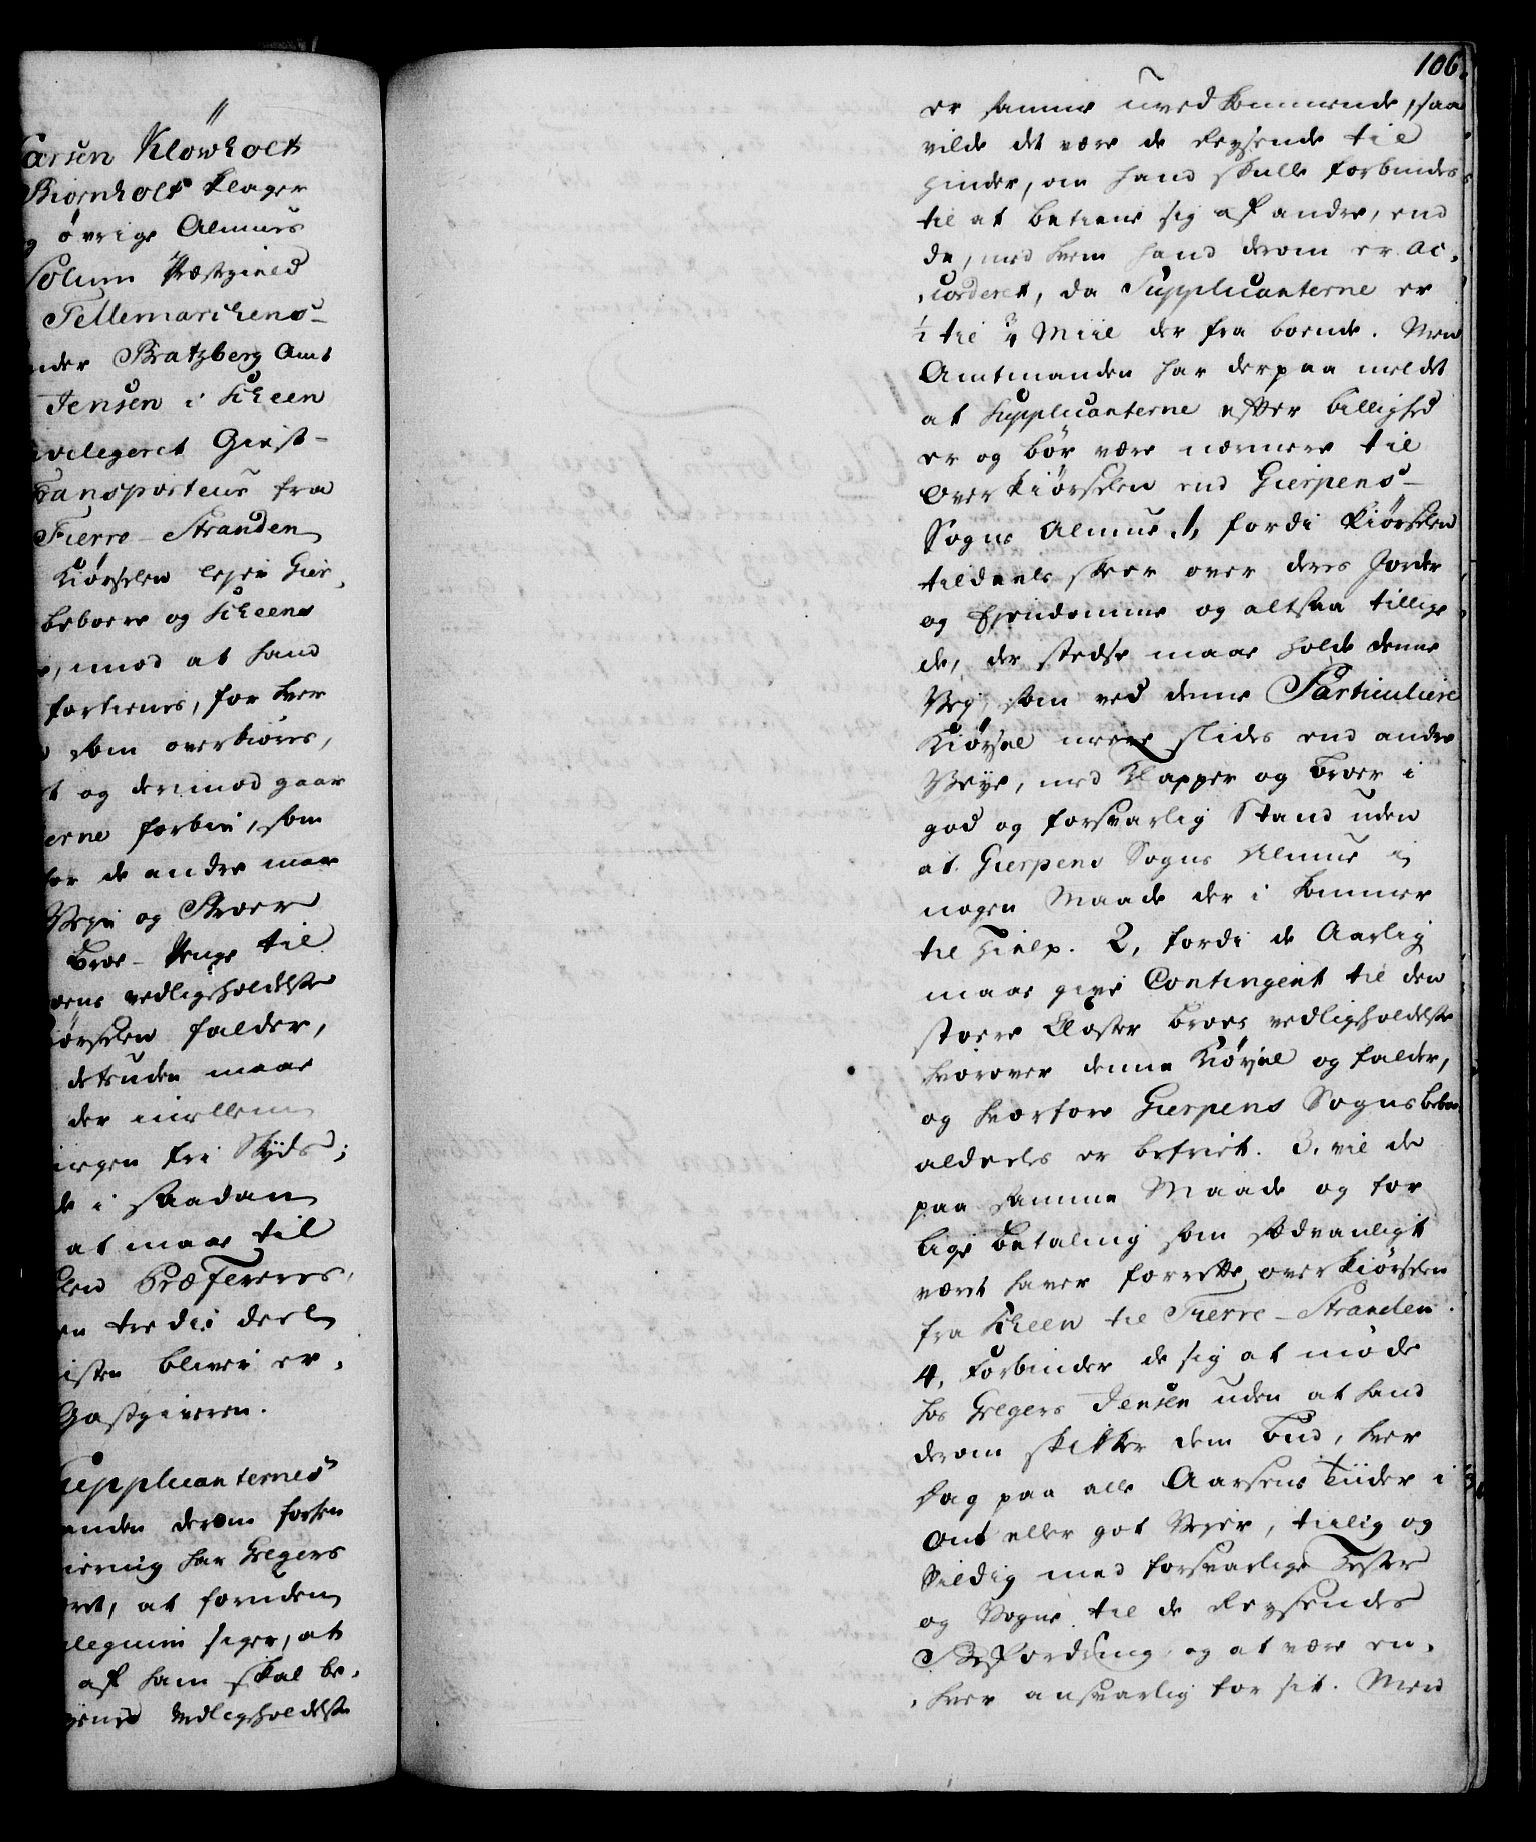 //
arsen Klowholt
Biørnholt klager
øvrige Almues
Solum Præstegield
Tellemarchens-
nder Bratzberg Amt
Jensen i Scheen
vilegeret Giest-
ransporteur fra
Fierre-Stranden
Kiørselen
beboere og Scheens
, imod at hand
fortienes, for hver
som overkiøres,
t og derimod gaar
erne forbi, som
for de andre maae
Veye og Broer
Broe-Penge til
oens vedligeholdelse
iørselen falder,
desuden maae
der imellem
fri Skyds;
de i saadan
at maae til
len Præfereres,
en tredie deel
isten bliver er-
Gastgiveren.
Supplicanternes
anden derom
har Gregers
ret, at
siger, at
af ham skal be-
yens vedligeholdelse
106.
er samme uvedkommende, saa
vilde det være de Reysende til
Hinder, om hand skulle forbindes
til at betiene sig af andre, end
de, med hvem hand derom er ac-
corderet, da Supplicanterne er
½ til ¾ Miil der fra boende. Men
Amtmanden har derpaa meldet
at Supplicanterne efter billighed
er og bør være nærmere til
Overkiørselen end Gierpens-
Sogns Almue. 1, fordi Kiørselen
tildeels skeer over deres Jorder
og Eyendomme og altsaa tillige
de, der stedse maae holde denne
Vey, som ved denne Particuliere
Kiørsel meere slides end andre
Veye, med Klapper og Broer i
god og forsvarlig Stand uden
at Gierpens Sogns Almue i
nogen Maade der i kommer
til Hielp. 2, fordi de Aarlig
maae give Contingent til den
stoere Kloster Broes vedligeholdelse
hvorover denne Kiørsel og falder,
og hvorfore Gierpens Sogns beboere
aldeeles er befriet. 3, vil de
paa samme Maade og for
lige Betaling som sædvanligt
været haver forrette overkiørselen
fra Scheen til Fierre-Stranden.
4, Forbinder de sig at møde
hos Gregers Jensen uden at hand
derom skikker dem Bud, hver
Dag paa alle Aarsens Tiider i
ont eller got Veyer, tiilig og
sildig med forsvarlige Hester
og Vogne til de Reysendes
Befordring, og at være en-
hver ansvarlig for sit. Men